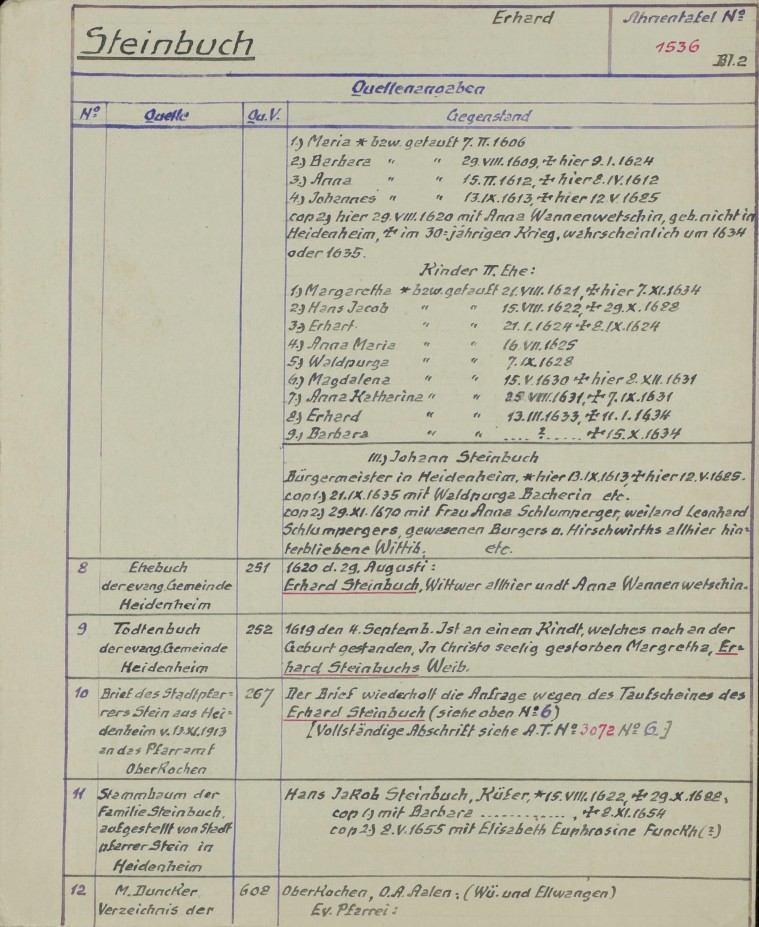 Steinbuch
Erhard
Ahnentafel Nº
1536
Bl.2
Quellenangaben
Nº Quelle Qu.V. Gegenstand
1.) Maria * bzw. getauft 7.II.1606
2.) Barbara " " 29.VIII.1609, ✝ hier 9.I.1624
3.) Anna " " 15.II.1612, ✝ hier 8.IV.1612
4.) Johannes " " 13.IX.1613, ✝ hier 12.V.1685
cop 2.) hier 29.VIII.1620 mit Anna Wannenwetschin, geb. nicht in
Heidenheim, ✝ im 30=jährigen Krieg, wahrscheinlich um 1634
oder 1635.
Kinder II. Ehe:
1.) Margaretha * bzw. getauft 21.VIII.1621, ✝ hier 7.XI.1634
2.) Hans Jacob " " 15.VIII.1622, ✝ 29.X.1688
3.) Erhart " " 21.I.1624 ✝ 8.IX.1624
4.) Anna Maria " " 16.VII.1625
5.) Waldpurga " " 7.IX.1628
6.) Magdalena " " 15.V.1630 ✝ hier 8.XII.1631
7.) Anna Katharina " " 25.VIII.1631, ✝ 7.IX.1631
8.) Erhard " " 13.III.1633, ✝ 11.I.1634
9.) Barbara " " .... ? ...... ✝ 15.X.1634
III.) Johann Steinbuch
Bürgermeister in Heidenheim, * hier 13.IX.1613, ✝ hier 12.V.1685.
cop 1.) 21.IX.1635 mit Waldpurga Bacherin etc.
cop 2.) 29.XI.1670 mit Frau Anna Schlumperger, weiland Leonhard
Schlumpergers, gewesenen Burgers u. Hirschwirths allhier hin=
terbliebene Wittib. etc.
8 Ehebuch 251 1620 d. 29. Augusti:
der evang. Gemeinde Erhard Steinbuch, Wittwer allhier undt Anna Wannenwetschin.
Heidenheim
9 Todtenbuch 252 1619 den 4. Septemb. Ist an einem Kindt, welches noch an der
der evang. Gemeinde Geburt gestanden, In Christo seelig gestorben Margretha, Er=
Heidenheim hard Steinbuchs Weib.
10 Brief des Stadtpfar= 267 Der Brief wiederholt die Anfrage wegen des Taufscheines des
rers Stein aus Hei= Erhard Steinbuch (siehe oben Nº 6)
denheim v. 13.XI.1913 [Vollständige Abschrift siehe A.T. Nº 3072 Nº 6.]
an das Pfarramt
Oberkochen
11 Stammbaum der Hans Jakob Steinbuch, Küfer, * 15.VIII.1622, ✝ 29.X.1688,
Familie Steinbuch, cop 1.) mit Barbara ............, ✝ 8.XI.1654
aufgestellt von Stadt cop 2.) 8.V.1655 mit Elisabeth Euphrosine Funckh (?)
pfarrer Stein in
Heidenheim
12 M. Duncker 608 Oberkochen, O.A. Aalen: (Wü. und Ellwangen)
Verzeichnis der Ev. Pfarrei: